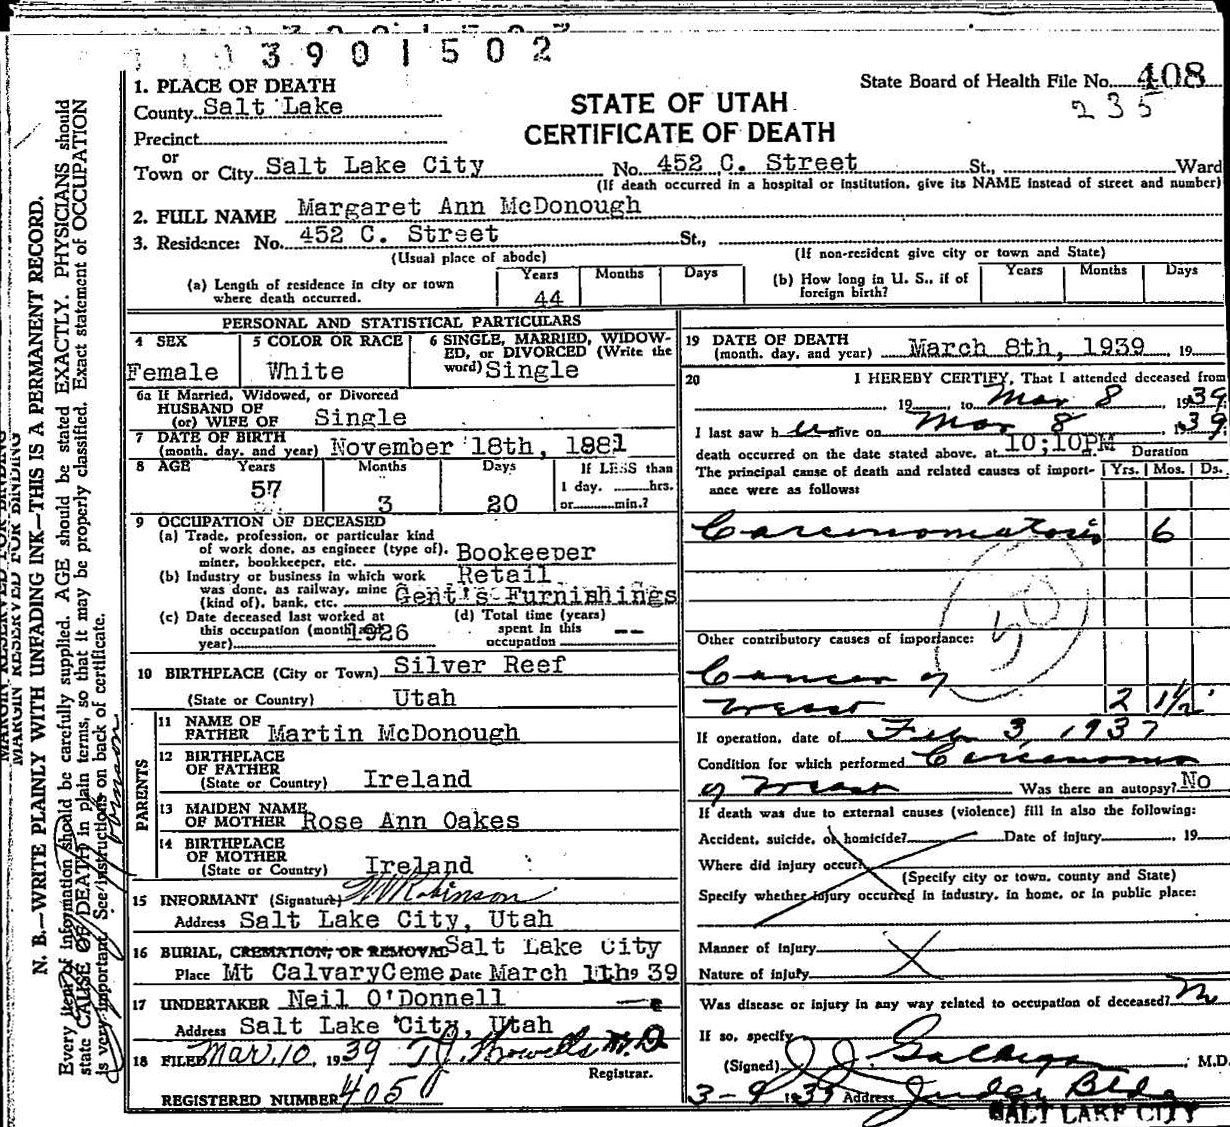 3901502
1. PLACE OF DEATH
County Salt Lake
State Board of Health File No. 408
235
STATE OF UTAH
CERTIFICATE OF DEATH
Precinct
or
Town or City Salt Lake City No. 452 C. Street St., Ward
(If death occurred in a hospital or institution, give its NAME instead of street and number)
2. FULL NAME Margaret Ann McDonough
3. Residence: No. 452 C. Street St.,
(Usual place of abode) (If non-resident give city or town and State)
(a) Length of residence in city or town where death occurred. Years 44 Months Days
(b) How long in U. S., if of foreign birth? Years Months Days
PERSONAL AND STATISTICAL PARTICULARS
4 SEX Female
5 COLOR OR RACE White
6 SINGLE, MARRIED, WIDOWED, or DIVORCED (Write the word) Single
6a If Married, Widowed, or Divorced
HUSBAND OF
(or) WIFE OF Single
7 DATE OF BIRTH
(month, day, and year) November 18th, 1881
8 AGE Years 57 Months 3 Days 20 If LESS than 1 day, hrs. or min.?
9 OCCUPATION OF DECEASED
(a) Trade, profession, or particular kind
of work done, as engineer (type of),
miner, bookkeeper, etc. Bookeeper
(b) Industry or business in which work
was done, as railway, mine
(kind of), bank, etc. Retail Gent's Furnishings
(c) Date deceased last worked at
this occupation (month and year) 1926
(d) Total time (years)
spent in this
occupation --
10 BIRTHPLACE (City or Town) Silver Reef
(State or Country) Utah
PARENTS
11 NAME OF
FATHER Martin McDonough
12 BIRTHPLACE
OF FATHER
(State or Country) Ireland
13 MAIDEN NAME
OF MOTHER Rose Ann Oakes
14 BIRTHPLACE
OF MOTHER
(State or Country) Ireland
15 INFORMANT (Signature) Robinson
Address Salt Lake City, Utah
16 BURIAL, CREMATION, OR REMOVAL Salt Lake City
Place Mt CalvaryCeme Date March 11th9 39
17 UNDERTAKER Neil O'Donnell
Address Salt Lake City, Utah
18 FILED Mar. 10, 1939 M.D.
Registrar.
REGISTERED NUMBER 405
19 DATE OF DEATH
(month, day, and year) March 8th, 1939 , 19
20 I HEREBY CERTIFY, That I attended deceased from
, 19 to Mar 8 1939
I last saw her alive on Mar 8 , 1939
death occurred on the date stated above, at 10;10PM
Duration
The principal cause of death and related causes of importance were as follows: Yrs. Mos. Ds.
Carcinomatosis 6
Other contributory causes of importance:
Cancer of
breast 2 1½
If operation, date of Feb 3, 1937
Condition for which performed Carcinoma
of breast Was there an autopsy? No
If death was due to external causes (violence) fill in also the following:
Accident, suicide, or homicide? Date of injury 19
Where did injury occur?
(Specify city or town, county and State)
Specify whether injury occurred in industry, in home, or in public place:
Manner of injury
Nature of injury
Was disease or injury in any way related to occupation of deceased? No
If so, specify
(Signed) J. J. Galligan , M.D.
3-9 1939 Address Judge Bldg
SALT LAKE CITY
MARGIN RESERVED FOR BINDING
N. B.—WRITE PLAINLY WITH UNFADING INK—THIS IS A PERMANENT RECORD.
Every item of information should be carefully supplied. AGE should be stated EXACTLY. PHYSICIANS should
state CAUSE OF DEATH in plain terms, so that it may be properly classified. Exact statement of OCCUPATION
is very important. See instructions on back of certificate.